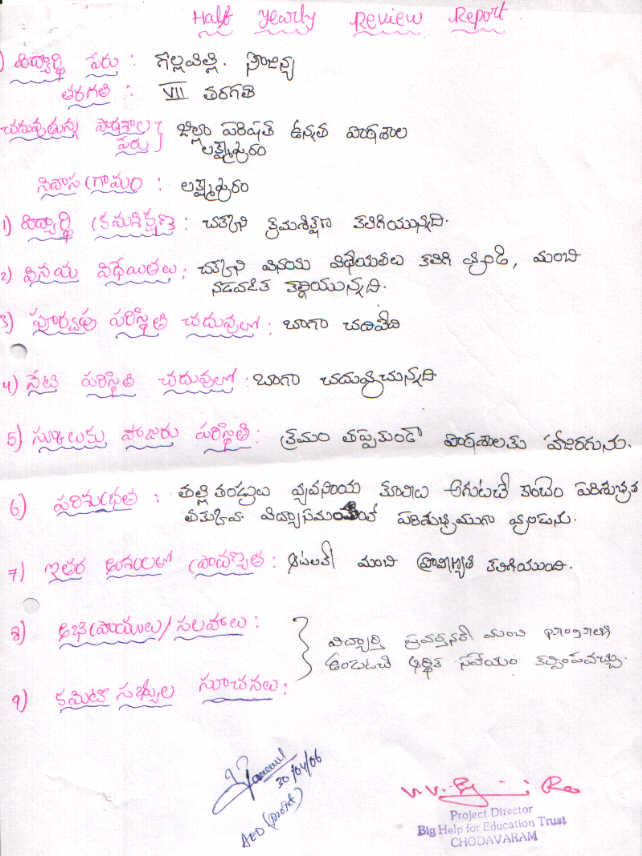 Half Yearly Review Report
విద్యార్థి పేరు :
తరగతి : VII తరగతి
చదువుతున్న పాఠశాల పేరు } జిల్లా పరిషత్ ఉన్నత పాఠశాల
లక్ష్మీపురం
నివాస గ్రామం : లక్ష్మీపురం
1) విద్యార్థి క్రమశిక్షణ : చక్కని క్రమశిక్షణ కలిగియున్నది.
2) వినయ విధేయతలు : చక్కని వినయ విధేయతలు కలిగి వుండి, మంచి
నడవడిక కల్గియున్నది.
3) పూర్వపు పరిస్థితి చదువులో : బాగా చదివేది
4) నేటి పరిస్థితి చదువులో : బాగా చదువుచున్నది
5) స్కూలుకు హాజరు పరిస్థితి : క్రమం తప్పకుండా పాఠశాలకు హాజరగును.
6) పరిశుభ్రత : తల్లి తండ్రులు వ్యవసాయ కూలీలు అగుటచే కొంచెం పరిశుభ్రత
తక్కువ పరిశుభ్రముగా వుండును.
7) ఇతర అంశాలలో ప్రావీణ్యత : ఆటలలో మంచి ప్రావీణ్యత కలిగియుంది.
8) అభిప్రాయులు/సలహాలు :
విద్యార్థి ప్రవర్తనలో మంచి
ఉండుటచే ఆర్థిక సహాయం కల్పించవచ్చు.
9) కమిటీ సభ్యుల సూచనలు :
30/04/06
Project Director
Big Help for Education Trust
CHODAVARAM